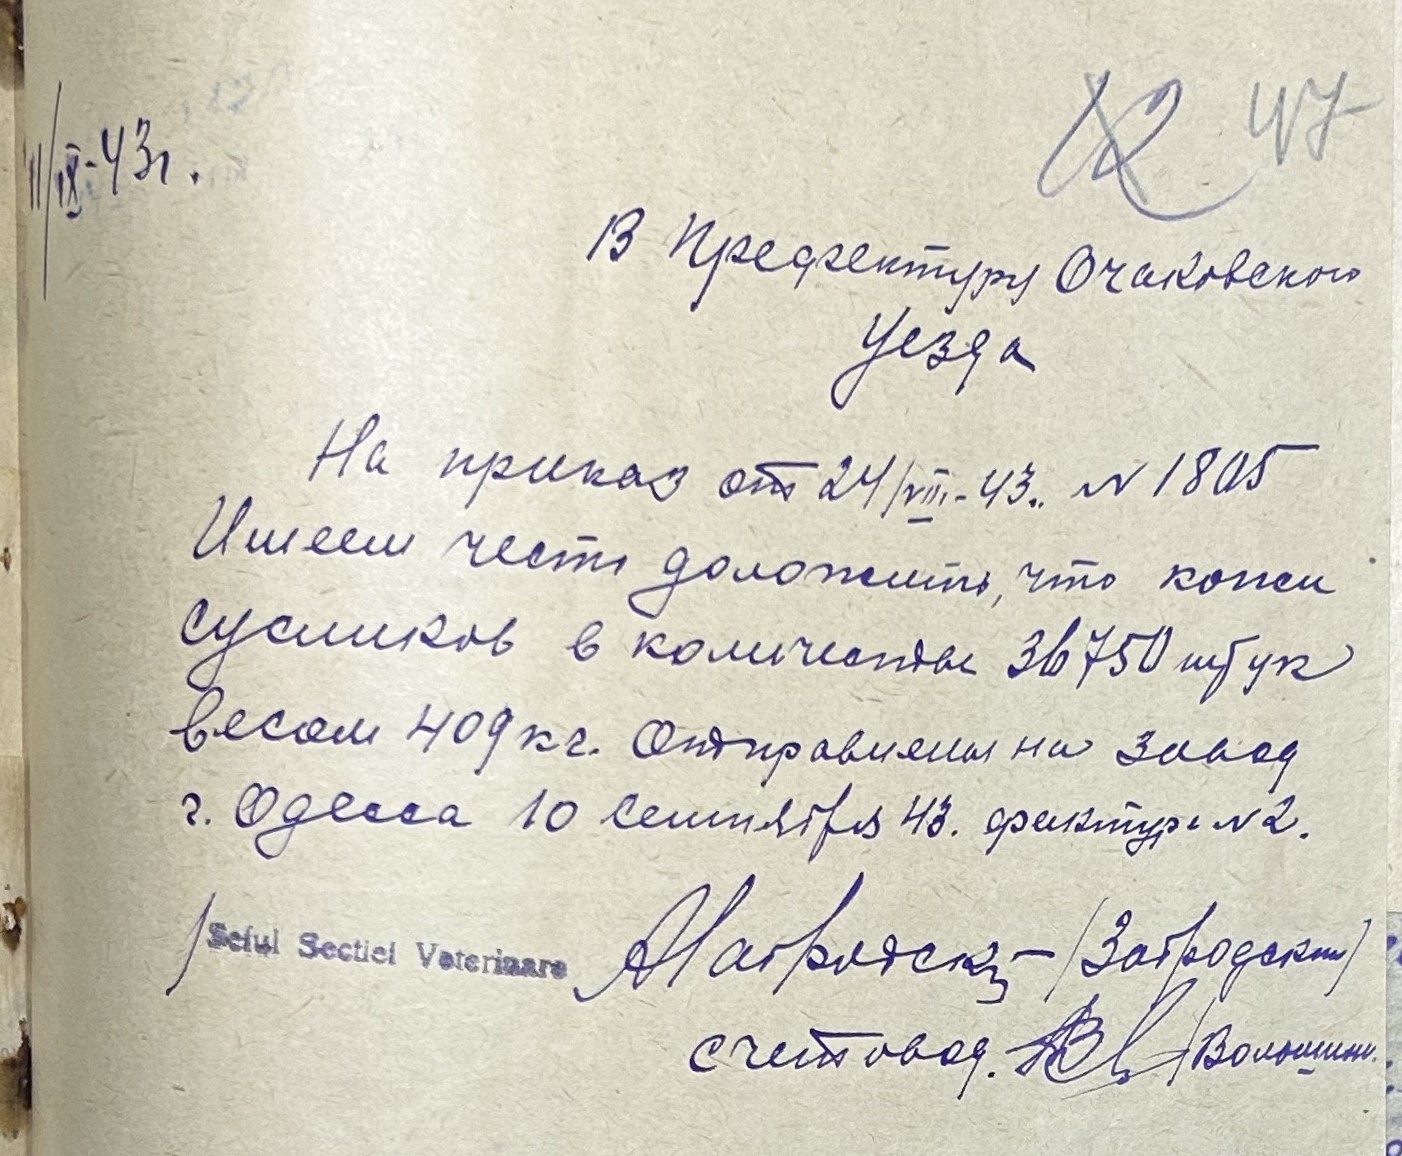 11/IX-43г.
47
В Префектуру Очаковского
Уезда
На приказ от 24/VIII-43. N 1805
Имеем честь доложить, что кожи
сусликов в количестве 36750 штук
весом 409 кг. Отправлены на завод
г. Одесса 10 сентября 43. фактура N 2.
Seful Sectiei Veterinare (Забродский)
счетовод. /Волошин.